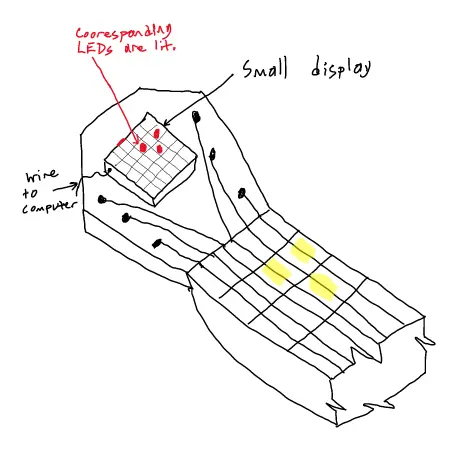 Cooresponding
LEDs are lit.
Small display
Wire
to
computer